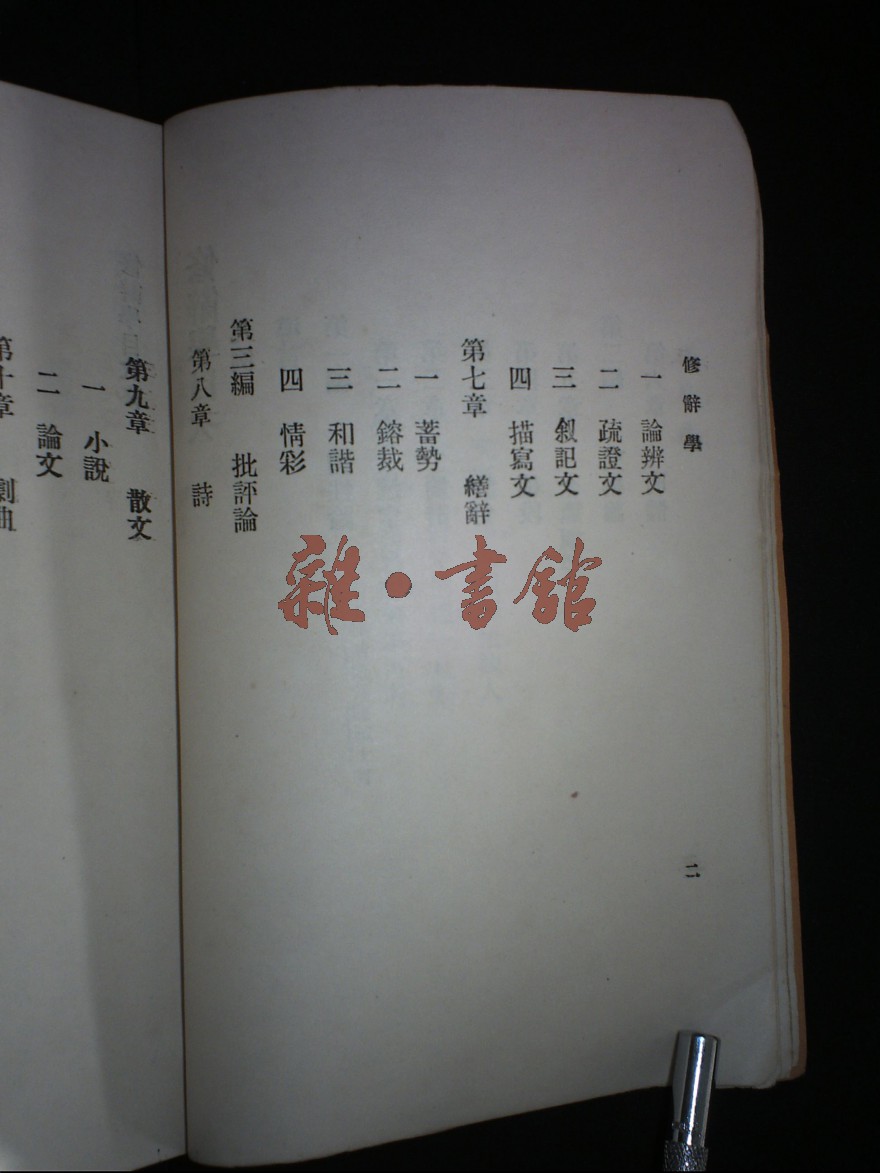 修辭學
一 論辨文
二 疏證文
三 叙記文
四 描寫文
第七章 繕辭
一 蓄勢
二 鎔裁
三 和諧
四 情彩
第三編 批評論
第八章 詩
二
第九章 散文
一 小說
二 論文
第十章 劇曲
雜·書館